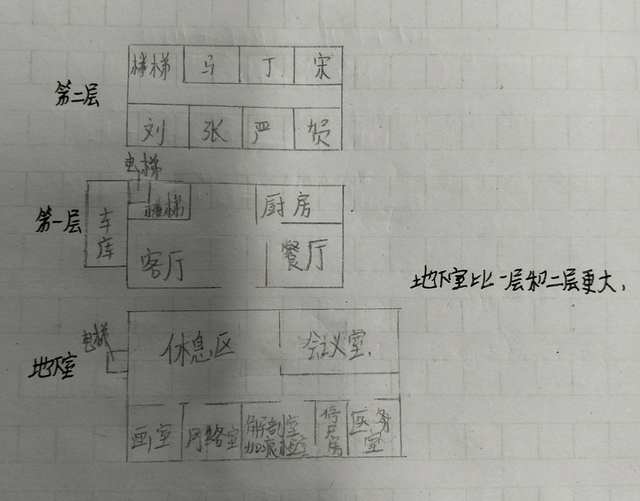 第二层
楼梯 马 丁 宋
刘 张 严 贺
第一层
电梯
楼梯
车库
厨房
客厅
餐厅
地下室比一层和二层更大.
地下室
电梯
休息区
会议室.
画室
网络室
解剖室
加痕检室
停尸房
医务室